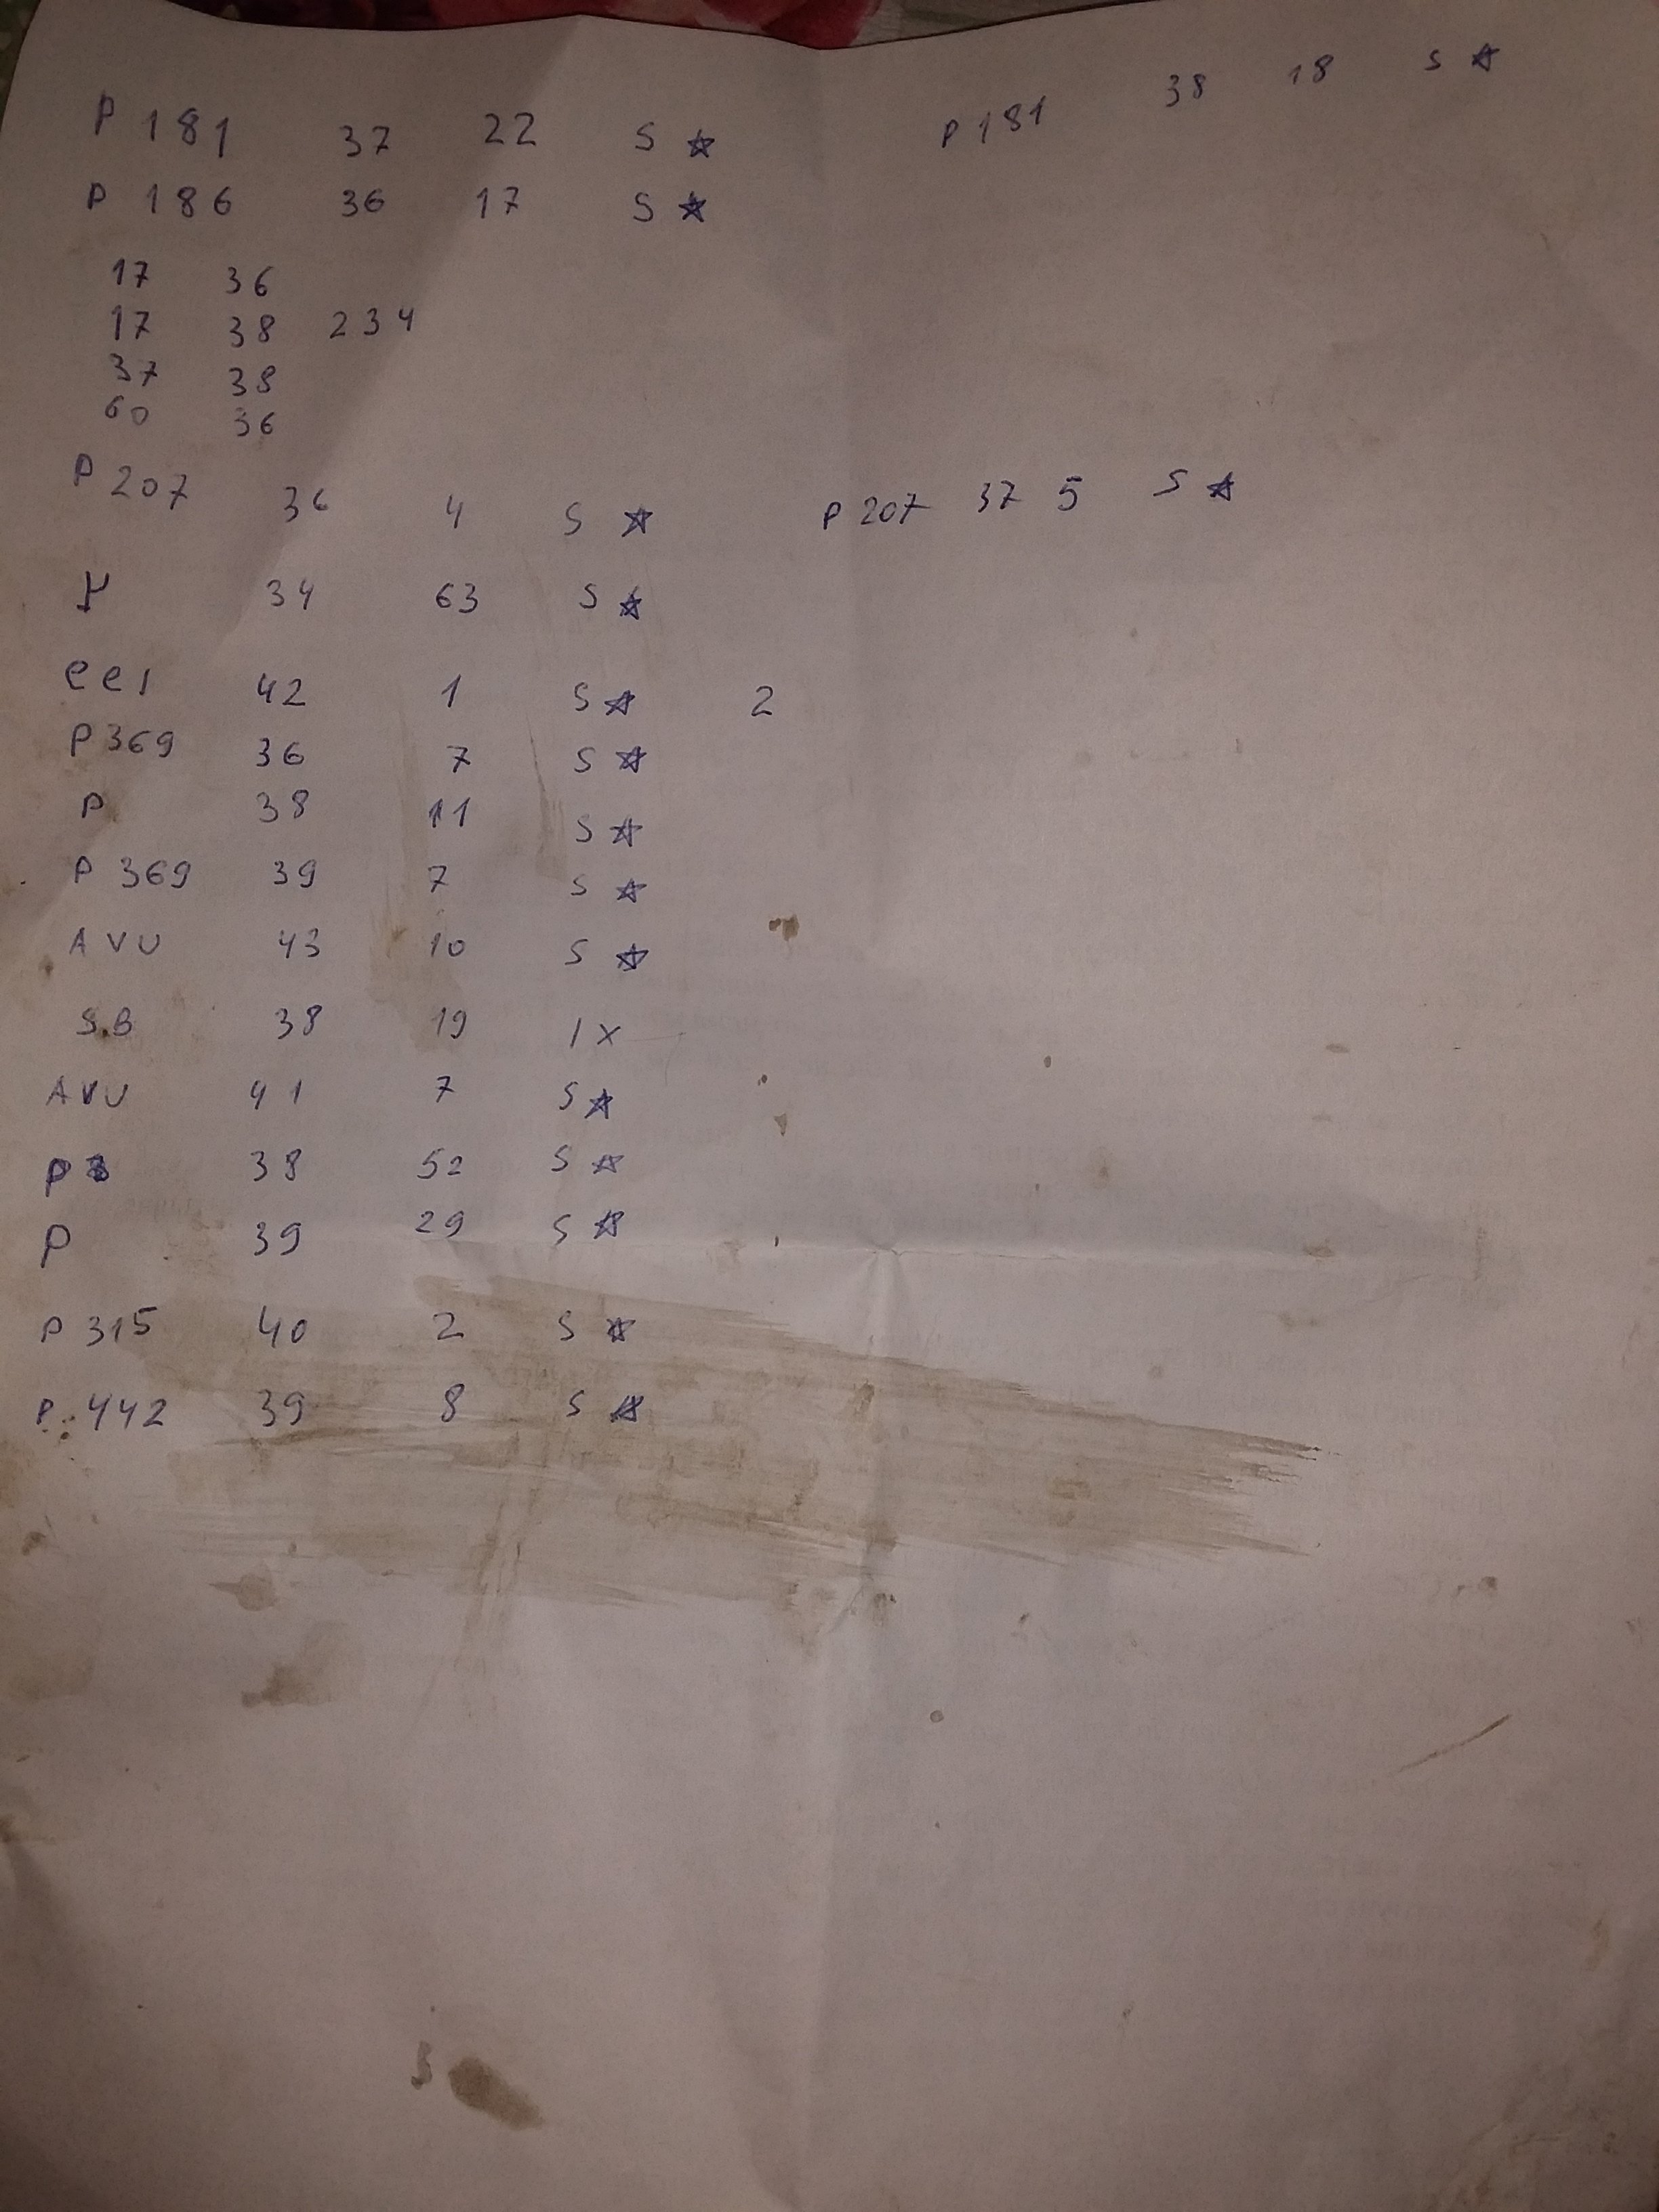 P 181 37 22 S ☆ P 181 38 18 S ☆
P 186 36 17 S ☆
17 36
17 38 234
37 38
60 36
P 207 36 4 S ☆ P 207 37 5 S ☆
34 63 S ☆
ee1 42 1 S ☆ 2
P 369 36 7 S ☆
P 38 11 S ☆
P 369 39 7 S ☆
AVU 43 10 S ☆
S.B 38 19 1X
AVU 41 7 S ☆
P 38 52 S ☆
P 39 29 S ☆
P 315 40 2 S ☆
P. 442 39 8 S ☆